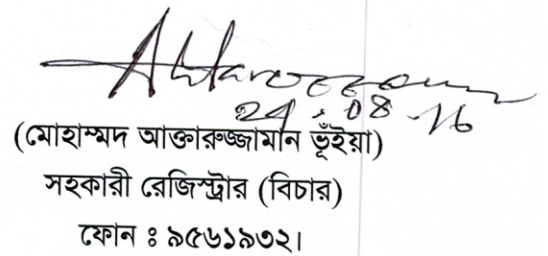 Aktaruzzaman
24.08.16
(মোহাম্মদ আক্তারুজ্জামান ভূঁইয়া)
সহকারী রেজিস্ট্রার (বিচার)
ফোন ঃ ৯৫৬১৯৩২।